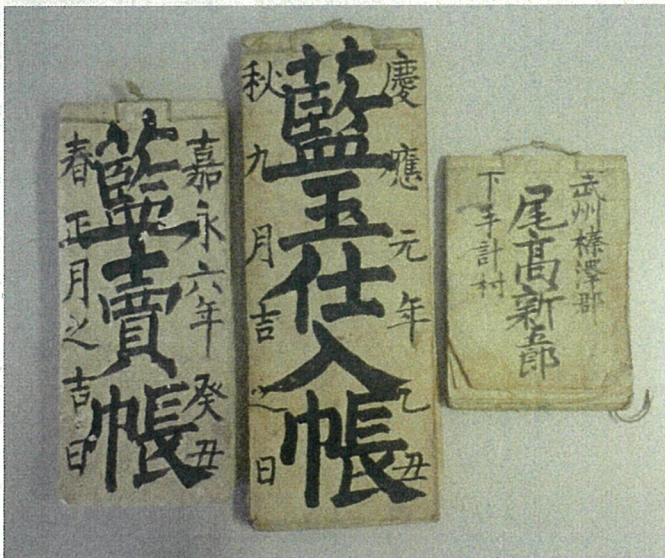 嘉永六年癸丑
藍賣帳
春正月之吉日
慶應元年乙丑
藍玉仕入帳
秋九月吉之日
武州榛澤郡
尾高新五郎
下手計村